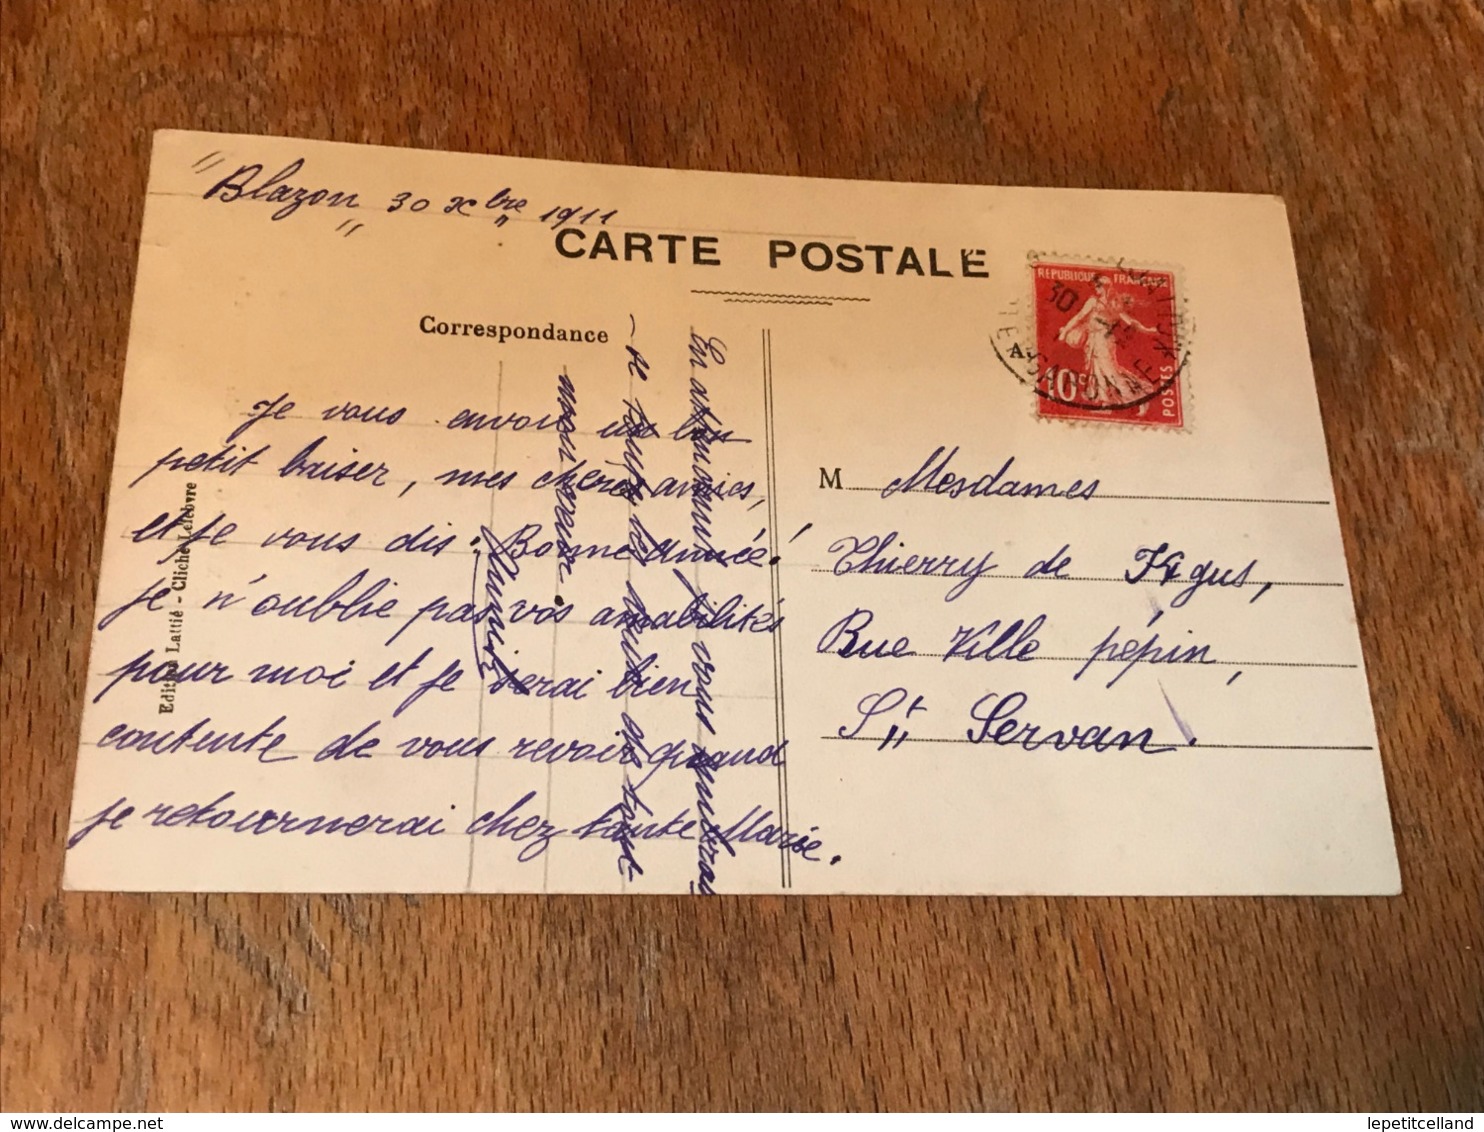 "Blazon" 30 Xbre 1911
CARTE POSTALE
Correspondance
Je vous envoie un bon
petit baiser, mes chères amies,
et je vous dis: Bonne année!
je n'oublie pas vos amabilités
pour moi et je serai bien
contente de vous revoir quand
je retournerai chez tante Marie.
En attendant, je vous
de tout
mon cœur.
Lattié - Cliché Lefebvre
REPUBLIQUE FRANÇAISE
30
10c
POSTES
A
M Mesdames
Thierry de
Rue Ville pépin,
St Servan.
lepetitcelland